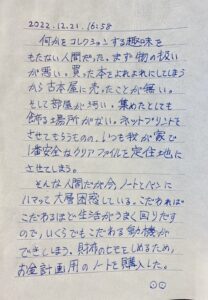 2022.12.21. 16:58
何かをコレクションする趣味を
もたない人間だった。まず物の扱い
が悪い。買った本をよれよれにしてしまう
から古本屋に売ったことが無い。
そして部屋が汚い。集めたとしても
飾る場所がない。ネットプリントで
させてもらうものの、いつも我が家で
1番安全なクリアファイルを定住地に
させてしまう。
そんな人間だが今、ノートとペンに
ハマって大層困惑している。こだわれば
こだわるほど生活がうまく回りだす
ので、いくらでもこだわる動機が
できてしまう。財布のヒモをしめるため、
お金計画用のノートを購入した。